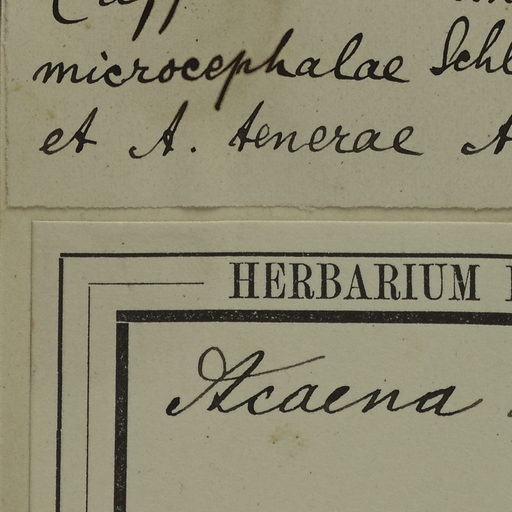 microcephalae Schl
et A. tenerae A
HERBARIUM
Acaena